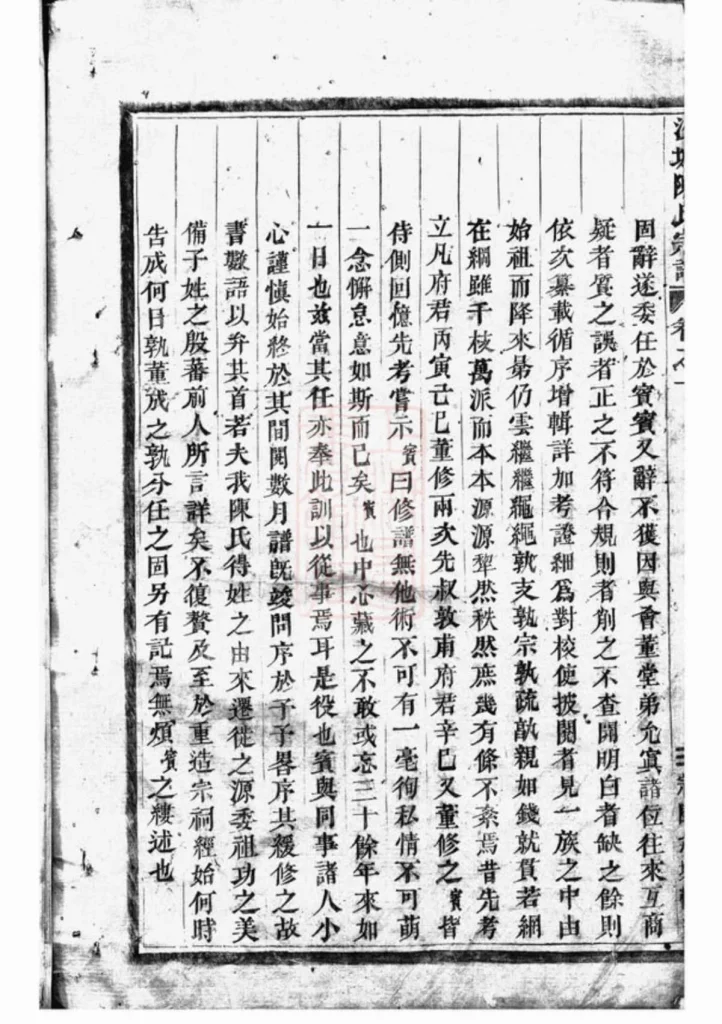 陳氏宗譜 卷之一
固辭遂委任於賓賓又辭不獲因與會董堂弟允寅諸位往來互商
疑者質之誤者正之不符合規則者削之不查開明白者缺之餘則
依次纂載循序增輯詳加考證細爲對校使披閱者見一族之中由
始祖而降來昴仍雲繼繼繩繩孰支孰宗孰疏孰親如錢就貫若網
在綱雖千枝萬派而本本源源犂然秩然庶幾有條不紊焉昔先考
立凡府君丙寅己巳董修兩次先叔敦甫府君辛巳又董修之賓皆
侍側回憶先考嘗示賓曰修譜無他術不可有一毫徇私情不可萌
一念懈怠意如斯而已矣賓也中心藏之不敢或忘三十餘年來如
一日也兹當其任亦奉此訓以從事焉耳是役也賓與同事諸人小
心謹愼始終於其間閱數月譜旣竣問序於予予畧序其緩修之故
書數語以弁其首若夫我陳氏得姓之由來遷徙之源委祖功之美
備子姓之殷蕃前人所言詳矣不復贅及至於重造宗祠經始何時
告成何日孰董成之孰分任之固另有記焉無煩賓之縷述也